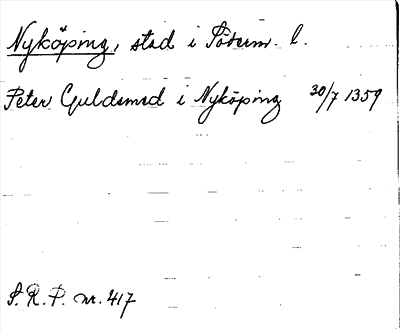 Nyköping, stad i Söderm. l.
Peter Guldsmed i Nyköping 30/7 1359
S.R.P. nr. 417